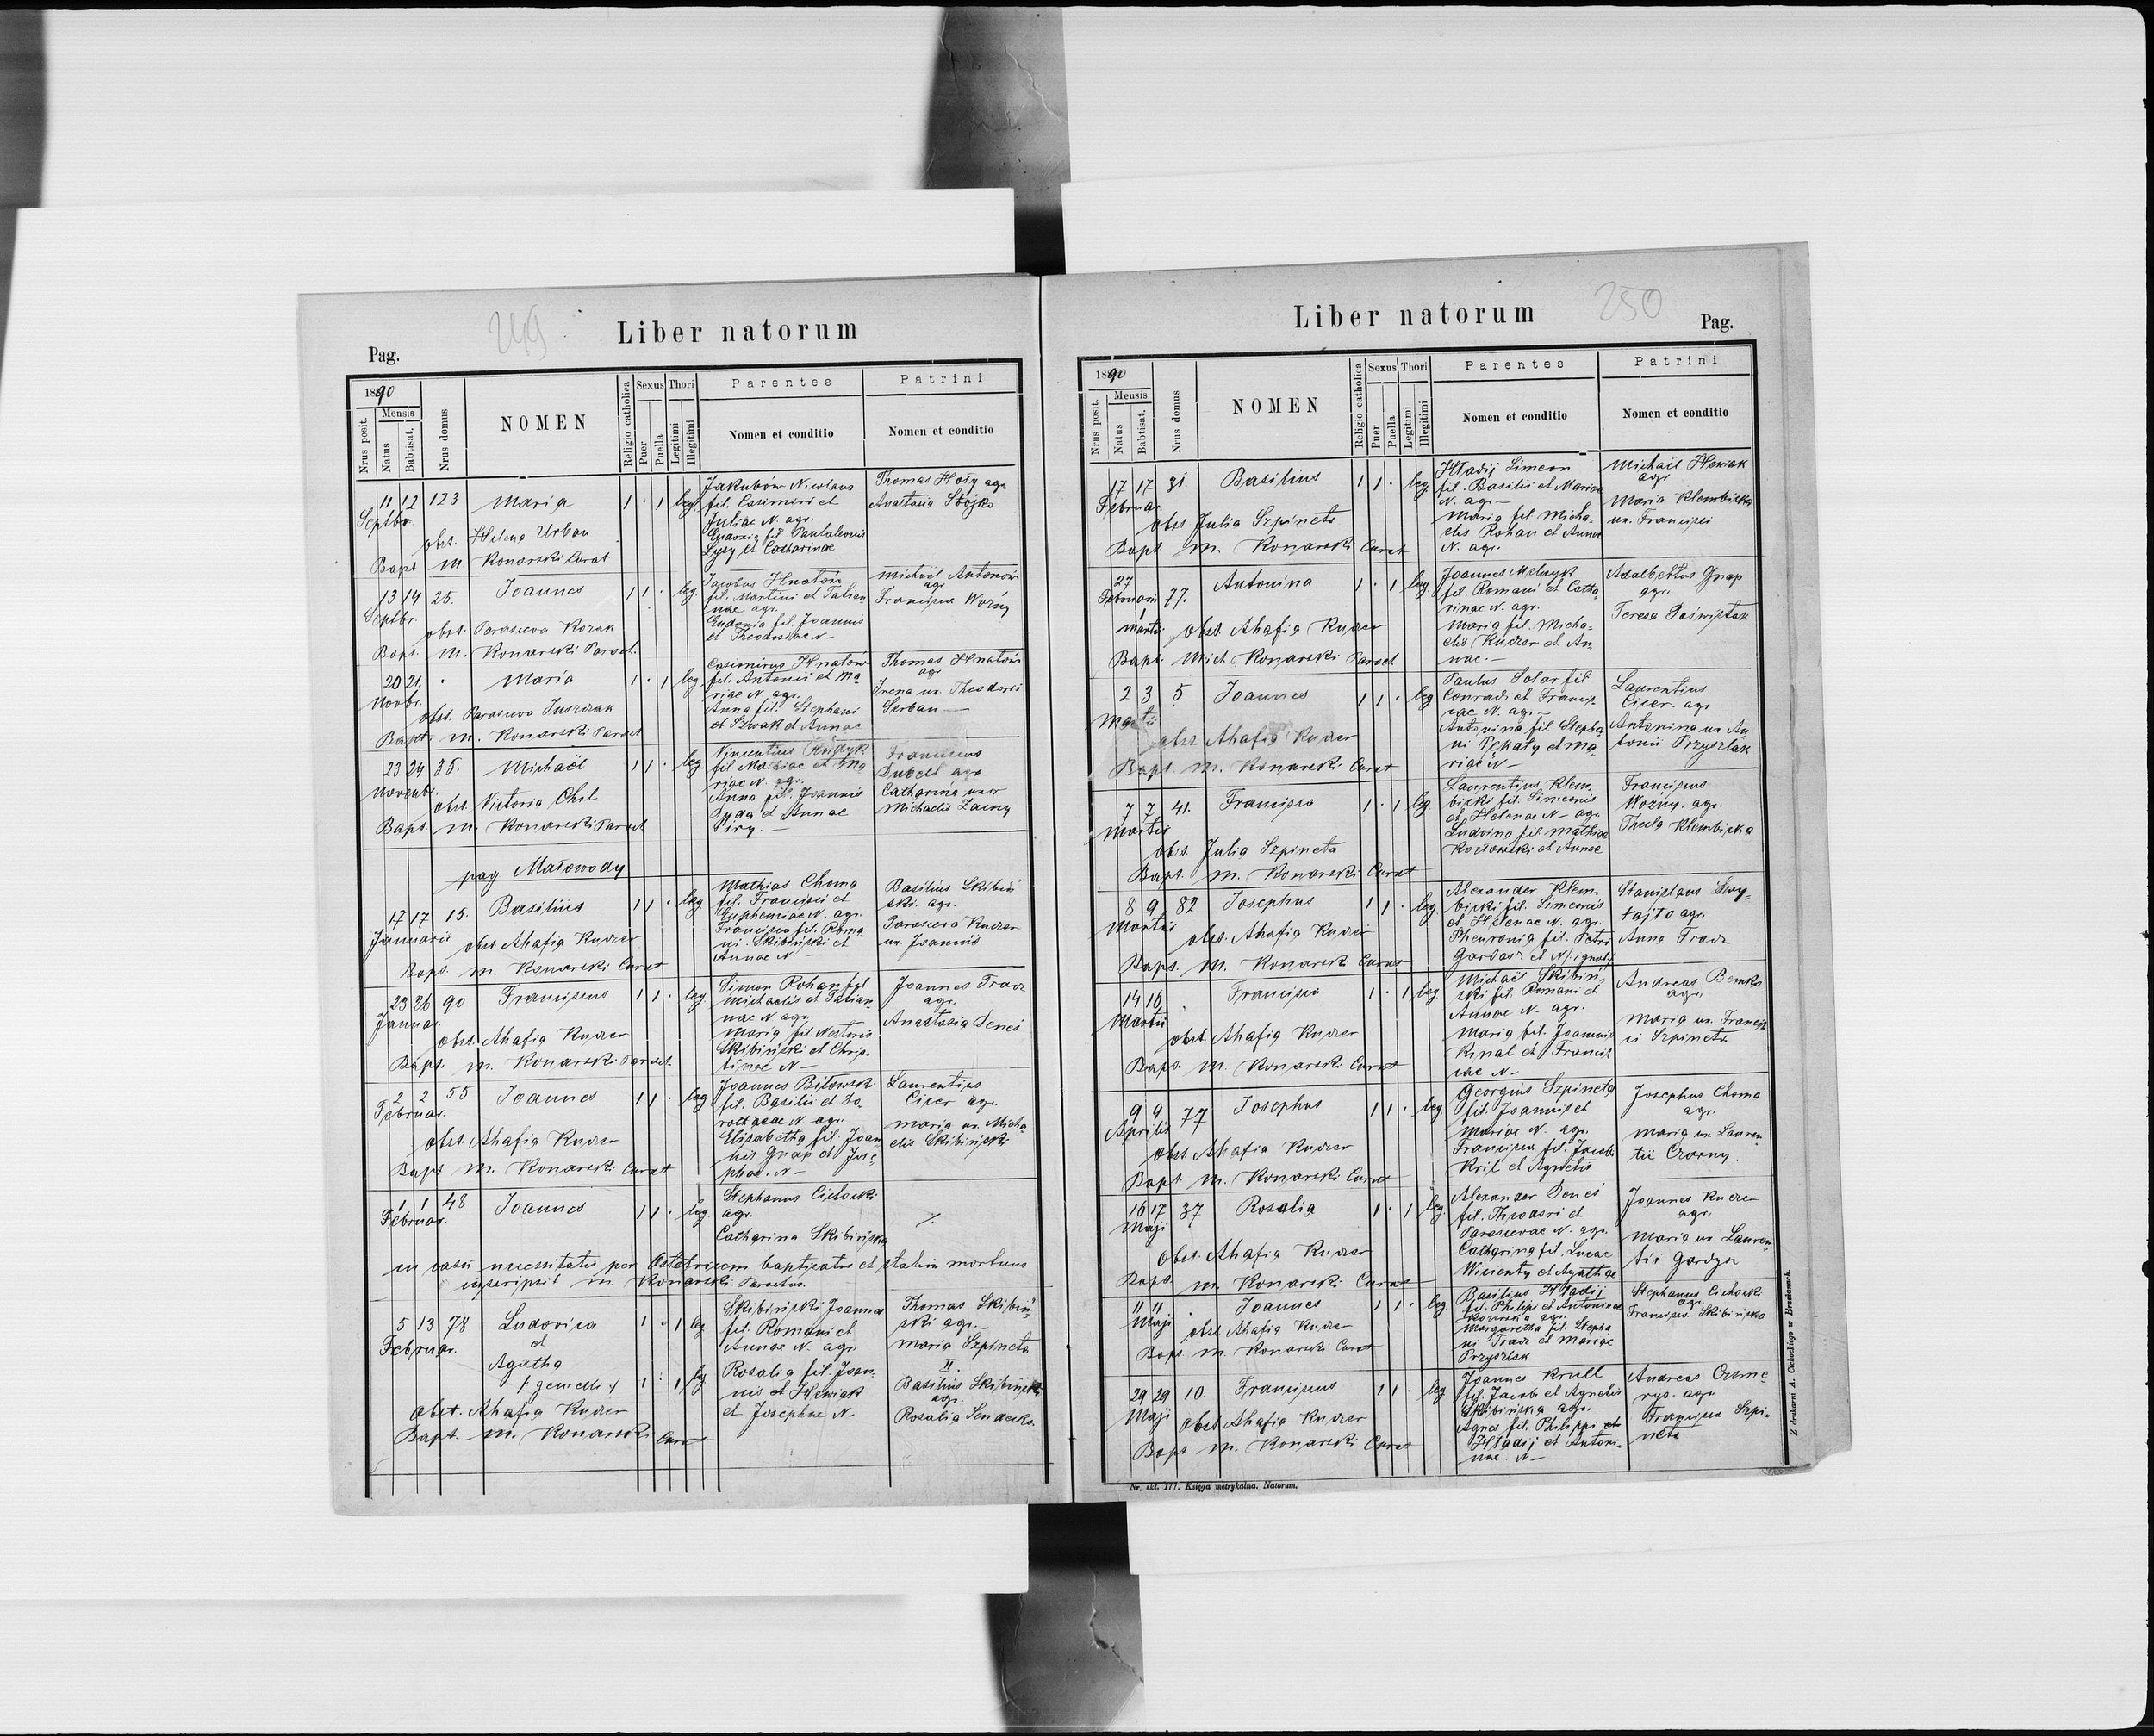 249
Liber natorum
Pag.
1890
Nrus posit.
Mensis
Natus
Babtisat.
Nrus domus
NOMEN
Religio catholica
Sexus
Puer
Puella
Thori
Legitimi
Illegitimi
Parentes
Nomen et conditio
Patrini
Nomen et conditio
11 12 123 Maria 1 · 1 leg
Septbr.
obst. Helena Urban
Bapt. M. Konarski Curat
Jakubów Nicolaus
fil. Casimiri et
Juliae N. agr.
Eudoxia fil Pantaleonis
Łysy et Catharinae
Thomas Hoły agr
Anastasia Stojko
13 14 25. Joannes 1 1 · leg.
Septbr.
obst. Parasceva Kozak
Bapt. M. Konarski Paroch.
Jacobus Hnatów
fil. Martini et Tatian
nae agr.
Eudoxia fil. Joannis
et Theodosiae N–
Michaël Antonów
agr
Francisca Woźny
20 21. · Maria 1 · 1 leg
Novbr.
obst. Parasceva Juszczak
Bapt. M. Konarski Paroch
Casimirus Hnatów
fil. Antonii et Ma
riae N. agr.
Anna fil. Stephani
et Szwak et Annae
Thomas Hnatów
agr
Irena ux. Theodori
Serban
23 24 35. Michaël 1 1 · leg.
Novemb.
obst. Victoria Chil
Bapt M. Konarski Paroch
Vincentius
fil Mathiae et Ma
riae N. agr.
Anna fil. Joannis
Dyda et Annae
Piry. –
Franciscus
Dubelt agr
Catharina uxor
Michaelis Zainy
pag Małowody
17 17 15. Basilius 1 1 · leg
Januarii
obst Ahafia Kuczer
Bapt. M. Konarski Curat
Mathias Choma
fil. Francisci et
Euphemiae N. agr.
Francisca fil. Roma
ni Skibiński et
Annae N –
Basilius Skibiń
ski. agr.
Parasceva Kuczer
ux Joannis
23 26 90 Franciscus 1 1 · leg
Januar.
obst. Ahafia Kuczer
Bapt. M. Konarski Paroch.
Simon Rohan fil
Michaelis et Tatian
nae N agr.
Maria fil Nestoris
Skibiński et Chris
tinae N –
Joannes Tracz
agr.
Anastasia Deneś
2 2 55 Joannes 1 1 · leg
Februar.
obst. Ahafia Kuczer
Bapt M. Konarski Curat
Joannes Biłowski
fil. Basilii et Do
rotheae N agr.
Elisabetha fil. Joan
nis Gnap et Jose
phae. N–
Laurentius
Cicer agr.
Maria ux. Micha
elis Skibiński
1 1 48 Joannes 1 1 · leg.
Februar.
Stephanus Cichocki
agr.
Catharina Skibińska
in casu necessitatis per Obstetricem baptizatus et statim mortuus
inscripsit M. Konarski Parochus.
5 13 78 Ludovica 1 · 1 leg
Februar.
et
Agatha
/ gemelli / 1 · 1 leg
obst. Ahafia Kuczer
Bapt. M. Konarski Curat
Skibiński Joannes
fil. Romani et
Annae N. agr.
Rosalia fil. Joan
nis et Hewiak
et Josephae N–
Thomas Skibiń
ski agr. –
Maria Szpineta
II
Basilius Skibiński
agr.
Rosalia Sendecka
Liber natorum
250
Pag.
1890
Nrus posit.
Mensis
Natus
Babtisat.
Nrus domus
NOMEN
Religio catholica
Sexus
Puer
Puella
Thori
Legitimi
Illegitimi
Parentes
Nomen et conditio
Patrini
Nomen et conditio
17 17 31. Basilius 1 1 · leg
Februar.
obst Julia Szpineta
Bapt M. Konarski Curat
Hładij Simeon
fil. Basilii et Mariae
N. agr. –
Maria fil. Micha
elis Rohan et Annae
N. agr.
Michaël Hewiak
agr
Maria Klembicka
ux. Francisci
27 Antonina 1 · 1 leg
Februarii 77.
1
Martii obst Ahafia Kuczer
Bapt. Mich Konarski Paroch
Joannes Melnyk
fil. Romani et Catha
rinae N. agr.
Maria fil. Micha
elis Kuczer et An
nae. –
Adalbertus Gnap
agr.
Teresa Pośmiętak
2 3 5 Joannes 1 1 · leg
Martii
obst. Ahafia Kuczer
Bapt. M. Konarski Curat
Paulus Solar fil
Conradi et Francis
cae N. agr –
Antonina fil Stepha
ni Pękaty et Ma
riae N –
Laurentius
Cicer. agr
Antonina ux. An
tonii Przyszlak
7 7 41. Francisca 1 · 1 leg
Martii
obst. Julia Szpineta
Bapt. M. Konarski Curat
Laurentius Klem
bicki fil. Simeonis
et Helenae N– agr.
Ludovica fil Mathiae
Kozłowski et Annae
Franciscus
Woźny. agr.
Thecla Klembicka
8 9 82 Josephus 1 1 · leg.
Martii
obst. Ahafia Kuczer
Bapt. M. Konarski Curat
Alexander Klem
bicki fil. Simeonis
et Helenae N. agr.
Phevronia fil. Petri
Gardasz et N/ignot/
Stanislaus Swy
tajło agr.
Anna Tracz
14 16. · Francisca 1 · 1 leg
Martii
obst. Ahafia Kuczer
Bapt. M. Konarski Curat
Michaël Skibiń
ski fil. Romani et
Annae N. agr.
Maria fil. Joannis
Kinal et Francis
cae N –
Andreas Bemko
agr.
Maria ux. Francis
ci Szpineta
9 9 77 Josephus 1 1 · leg.
Aprilis
obst Ahafia Kuczer
Bapt M. Konarski Curat
Georgius Szpineta
fil. Joannis et
Mariae N. agr.
Francisca fil. Jacobi
Kril et Agnetis
Josephus Choma
agr.
Maria ux Lauren
tii Czorny.
16 17 37 Rosalia 1 · 1 leg.
Maji
Obst. Ahafia Kuczer
Bapt. M. Konarski Curat
Alexander Deneś
fil. Theodori et
Parascevae N. agr.
Catharina fil. Lucae
Wicienty et Agathae
Joannes Kuczer
agr.
Maria ux Lauren
tii Gardza
11 11 · Joannes 1 1 · leg.
Maji
obst Ahafia Kuczer
Bapt. M. Konarski Curat
Basilius Hładij
fil. Philipi et Antoninae
agr.
Margaretha fil. Stepha
ni Tracz et Mariae
Przyszlak
Stephanus Cichocki
agr.
Francisca Skibińska
29 29 10. Franciscus 1 1 · leg
Maji
obst Ahafia Kuczer
Bapt M. Konarski Curat
Joannes Krull
fil. Jacobi et Agnetis
Skibińska agr.
Agnes fil. Philippi et
Hładij et Antoni
nae N –
Andreas
rys. agr.
Francisca Szpi
neta
Nr. skl. 177. Księga metrykalna. Natorum.
Z drukarni A. Cichockiego w Brzeżanach.